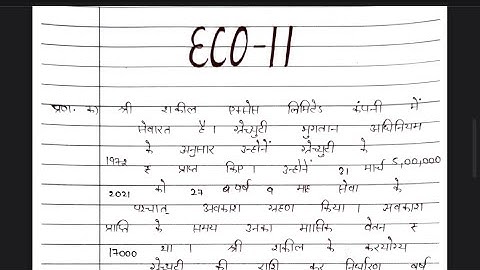 ECO-11
प्रश्न. क) श्री शकील एक्मोस लिमिटेड कंपनी में
सेवारत है । ग्रेच्युटी भुगतान अधिनियम
के अनुसार उन्होनें ग्रेच्युटी के
1972 रु प्राप्त किए । उन्होनें 21 मार्च 5,00,000
2021 को 27 वर्ष 9 माह सेवा के
पश्चात् अवकाश ग्रहण किया । अवकाश
प्राप्ति के समय उनका मासिक वेतन रु
17000 था । श्री शकील के करयोग्य
ग्रेच्युटी की राशि कर निर्धारण वर्ष